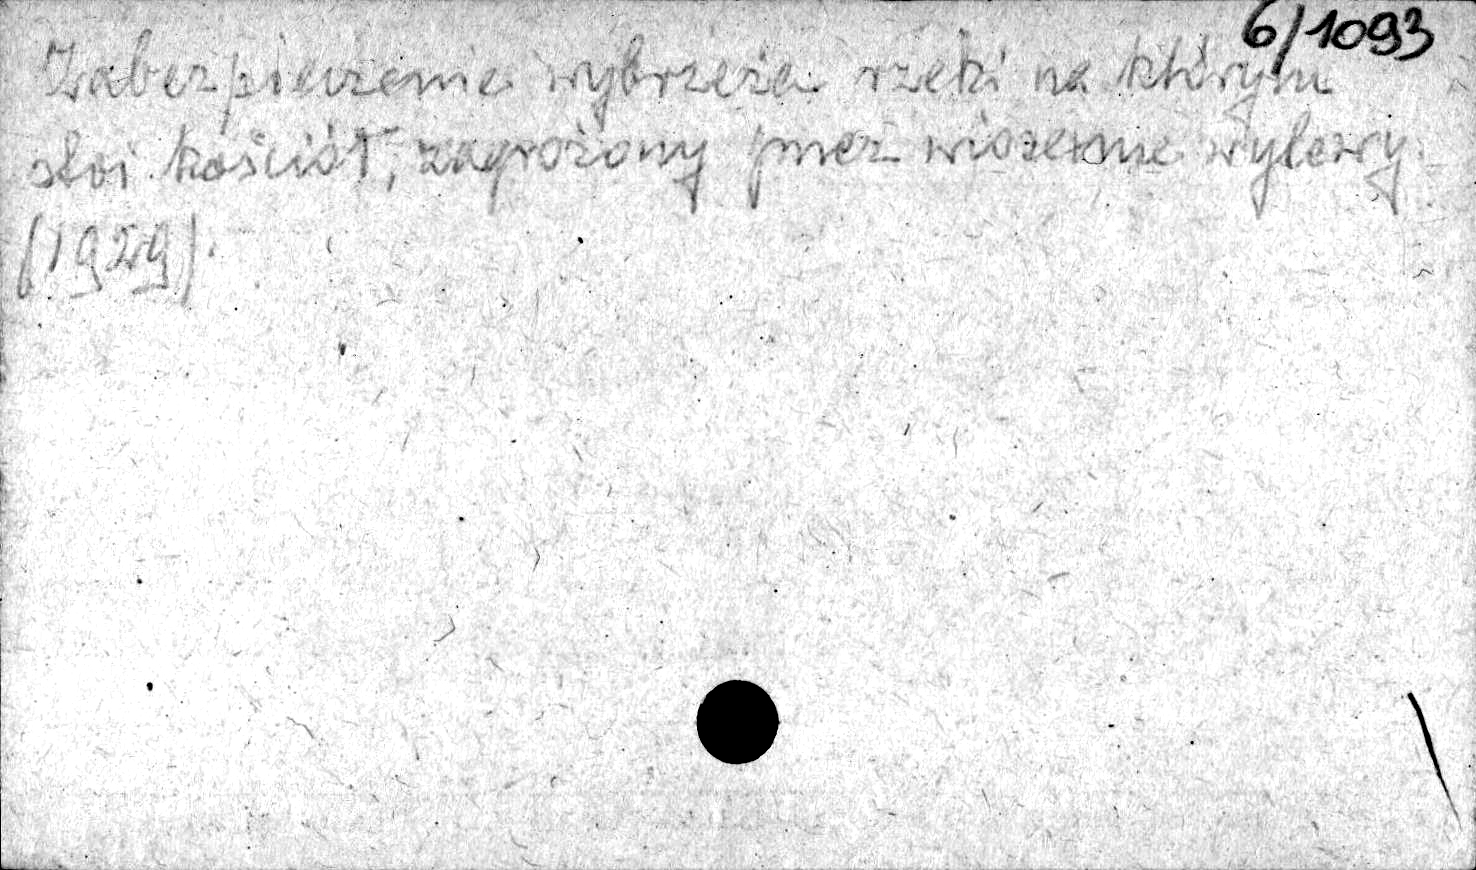 6/1093
Zabezpieczenie wybrzeża rzeki na którym
stoi kościół, zagrożony przez wiosenne wylewy.
(1929).